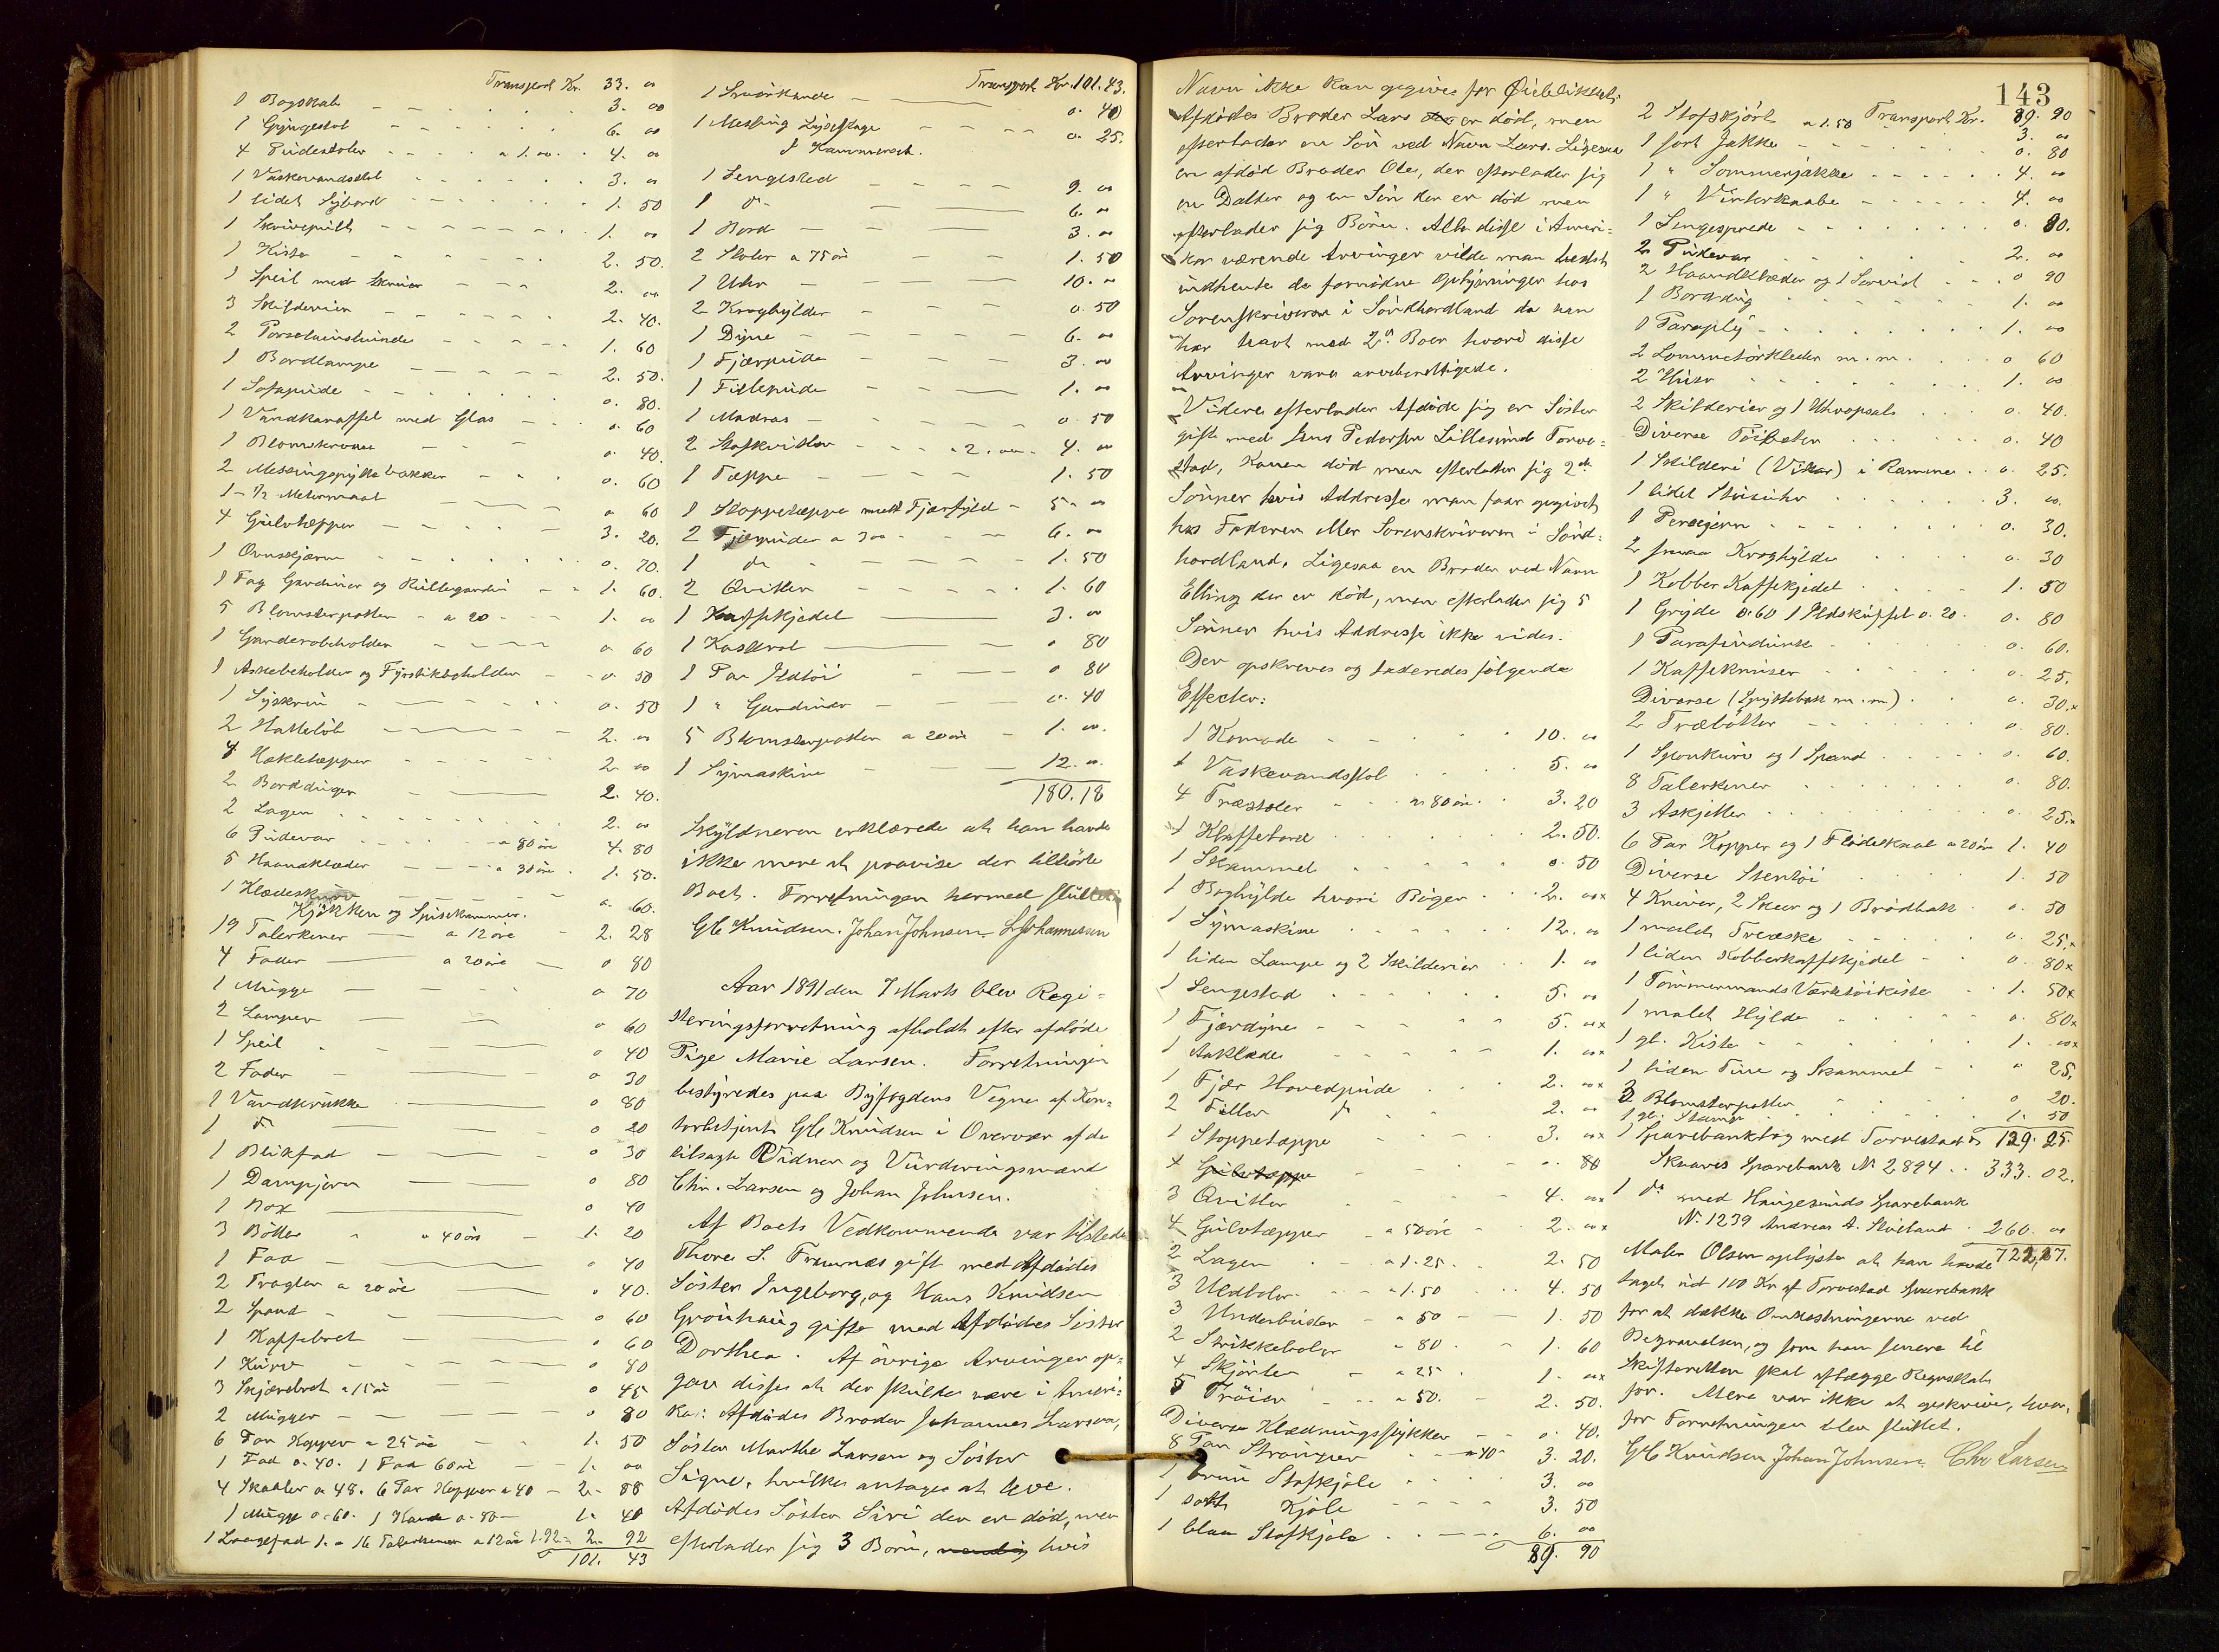 Transport Kr. 33. 00
1 Bogskab 3. 00
1 Gyngestol 6. 00
4 Pudestoler a 1.00. 4. 00
1 Vaskevandsstol 3. 00
1 lidet Sybord 1. 50
1 Skrivepult 1. 00
1 Kiste 2. 50.
1 Speil med Skruer 2. 00
3 Skilderier 2. 40.
2 Porselainshunde 1. 60
1 Bordlampe 2. 50.
1 Sofapude 0. 80.
1 Vandkaraffel med Glas 0. 60
1 Blomskrone 0. 40.
2 Messingspyttebakker 0. 60
1 - 1/2 Metermaal 0 60
4 Gulvtepper 3. 20.
1 Ovnsskjærm 0. 70.
1 Fag Gardiner og Rullegardin 1. 60.
5 Blomsterpotter a 20 1. 00
1 Garderobeholder 0. 60
1 Askebeholder og Fyrstikbeholder 0. 50
1 Syskrin 0. 50
2 Hatteløb 2. 00
4 Hækletepper 2. 00
2 Bordduger 2. 40.
2 Lagen 2. 00
6 Pudevar a 80 øre 4. 80
5 Haandklæder a 30 øre 1. 50.
1 Klædeskurv 0. 60.
Kjøkken og Spisekammer.
19 Talerkener a 12 øre 2. 28
4 Fader a 20 øre 0 80
1 Mugge 0 70
2 Lamper 0 60
1 Speil 0 40
2 Fader 0 30
1 Vandkrukke 0 80
1 do 0 20
1 Blikfad 0 30
1 Dampjern 0 80
1 Box 0 40
3 Bøtter a 40 øre 1. 20
1 Fad 0 40
2 Tragter a 20 øre 0 40.
2 Spand 0 60
1 Kaffebret 0 60
1 Kurv 0 80
3 Skjærebret a 15 øre 0 45
2 Mugger 0 80
6 Par Kopper a 25 øre 1. 50
1 Fad 0.40. 1 Fad 60 øre 1. 00
4 Skaaler a 48. 6 Par Kopper a 40 2. 88
1 Mugge 0.60. 1 Kande 0.80 1. 40
1 Langefad 1. 0 16 Talerkener a 12 øre 1.92 2. 92
101. 43
Transport Kr. 101.43.
1 Smørkande 0. 40
1 Messing Lysestage 0. 25.
I Kammerset.
1 Sengested 9. 00
1 do 6. 00
1 Bord 3. 00
2 Stoler a 75 øre 1. 50
1 Uhr 10. 00
2 Kroghylder 0. 50
1 Dyne 6. 00
1 Fjærpude 3. 00
1 Fillepude 1. 00
1 Madras 0. 50
2 Stofkvitler a 2.00 4. 00
1 Teppe 1. 50
1 Stoppeteppe med Fjærfyld 5. 00
2 Fjærpuder a 3 00 6. 00
1 do 1. 50
2 Qvitler 1. 60
1 Kaffekjedel 3. 00
1 Kasserol 0 80
1 Par Ildtøi 0 80
1 " Gardiner 0. 40
5 Blomsterpotter a 20 øre 1. 00.
1 Symaskine 12. 00.
180.18
Skyldneren erklærede at han havde
ikke mere at paavise der tilhørte
Boet. Forretningen hermed sluttet
GC Knudsen. Johan Johnsen L Johannessen
Aar 1891 den 7 Marts blev Regi=
streringsforretning afholdt efter afdøde
Pige Marie Larsen. Forretningen
bestyredes paa Byfogdens Vegne af Kon=
torbetjent GC Knudsen i Overvær af de
tilsagte Vidner og Vurderingsmænd
Chr. Larsen og Johan Johnsen.
Af Boets Vedkommende var tilstede
Thore S. Framnæs gift med Afdødes
Søster Ingeborg, og Hans Knudsen
Grønhaug gifte med Afdødes Søster
Dorthea. Af øvrige Arvinger op=
gav disse at der skulde være i Ameri=
ka: Afdødes Broder Johannes Larsen,
Søster Marthe Larsen og Søster
Signe, hvilke antages at leve.
Afdødes Søster Siri der er død, men
efterlader sig 3 Børn, hvis
143
Navn ikke kan opgives for Øieblikket.
Afdødes Broder Lars er død, men
efterlader en Søn ved Navn Lars. Ligesaa
en afdød Broder Ole, der efterlader sig
en Datter og en Søn der er død men
efterlader sig Børn. Alle disse i Ameri=
ka værende Arvinger vilde man bedst
indhente de fornødne Oplysninger hos
Sorenskriveren i Søndhordland da han
har havt med 2de Boer hvori disse
Arvinger vare arveberettigede.
Videre efterlader Afdøde sig en Søster
gift med Jens Pedersen Lillesund Torve=
stad, Konen død men efterlader sig 2de
Sønner hvis Addresse man faar opgivet
hos Faderen eller Sorenskriveren i Sønd=
hordland. Ligesaa en Broder ved Navn
Elling der er død, men efterlader sig 5
Sønner hvis Addresse ikke vides.
Der opskreves og taxeredes følgende
Effecter:
1 Komode 10. 00
1 Vaskevandsstol 5. 00
4 Træstoler a 80 øre 3. 20
1 Klaffebord 2. 50.
1 Skammel 0. 50
1 Boghylde hvori Bøger 2. 00x
1 Symaskine 12. 00
1 liden Lampe og 2 Skilderier 1. 00
1 Sengested 5. 00
1 Fjærdyne 5. 00x
1 Aaklæde 1. 00x
1 Fjær Hovedpude 2. 00x
2 Filler do 2. 00
1 Stoppeteppe 3. 00x
1 Gulvteppe 0. 80
3 Qvitler 4. 00x
4 Gulvtepper a 50 øre 2. 00x
2 Lagen a 1.25 2. 50
3 Uldboler a 1.50 4. 50
3 Underbuxer a 50 1. 50
2 Strikkeboler a 80 1. 60
4 Skjørter a 25 1. 00x
5 Trøier a 50. 2. 50.
Diverse Klædningsstykker 0. 40.
8 Par Strømper a 40 3. 20.
1 brun Stofkjole 3. 00
1 sort Kjole 3. 50
1 blaa Stofkjole 6. 00
89. 90
Transport Kr. 89. 90
2 Stofskjørt a 1.50 3. 00
1 sort Jakke 0. 80
1 " Sommerjakke 4. 00
1 " Vinterkaabe 4. 00
1 Sengesprede 0. 80.
2 Pudevar 2. 00
2 Haandklæder og 1 Serviet 0 90
1 Borddug 1. 00
1 Paraply 1. 00
2 Lommetørklæder m.m. 0 60
2 Huer 1. 00
2 Skilderier og 1 Uhropsats 0. 40.
Diverse Tøifiller 0. 40
1 Skilderi (Vikar) i Ramme 0. 25.
1 lidet Stueuhr 3. 00.
1 Persejern 0. 30.
2 smaa Kroghylder 0. 30
1 Kobber Kaffekjedel 1. 50
1 Gryde 0.60 1 Ildskuffel 0. 20. 0. 80
1 Parafindunk 0. 60.
1 Kaffekruser 0. 25.
Diverse (Spyttebak m.m) 0. 30.x
2 Træbøtter 0. 80.
1 Sponkurv og 1 Spand 0. 60.
8 Talerkener 0. 80.
3 Askjetter 0. 25.x
6 Par Kopper og 1 Flødeskaal a 20 øre 1. 40
Diverse Stentøi 1. 50
4 Kniver, 2 Skeer og 1 Brødbak 0. 50
1 malet Trææske 0. 25.x
1 liden Kobberkaffekjedel 0. 80x
1 Tømmermands Værktøikiste 1. 50x
1 malet Hylde 0. 80x
1 gl. Kiste 1. 00x
1 liden Tine og Skammel 0 25,
3 Blomsterpotter 0 20.
1 gl. Stamp 1. 50
1 Sparebankbog med Torvestad & 129. 25.
Skaares Sparebank No 2894 333. 02.
1 do med Haugesunds Sparebank
No. 1239 Andreas A. Skeisland 260. 00
722.27.
Maler Olsen oplyste at han havde
taget ud 100 Kr af Torvestad Sparebank
for at dække Omkostningerne ved
Begravelsen, og som han senere til
Skifteretten skal aflægge Regnskab
for. Mere var ikke at opskrive, hvor=
for Forretningen blev sluttet.
GC Knudsen Johan Johnsen Chr Larsen